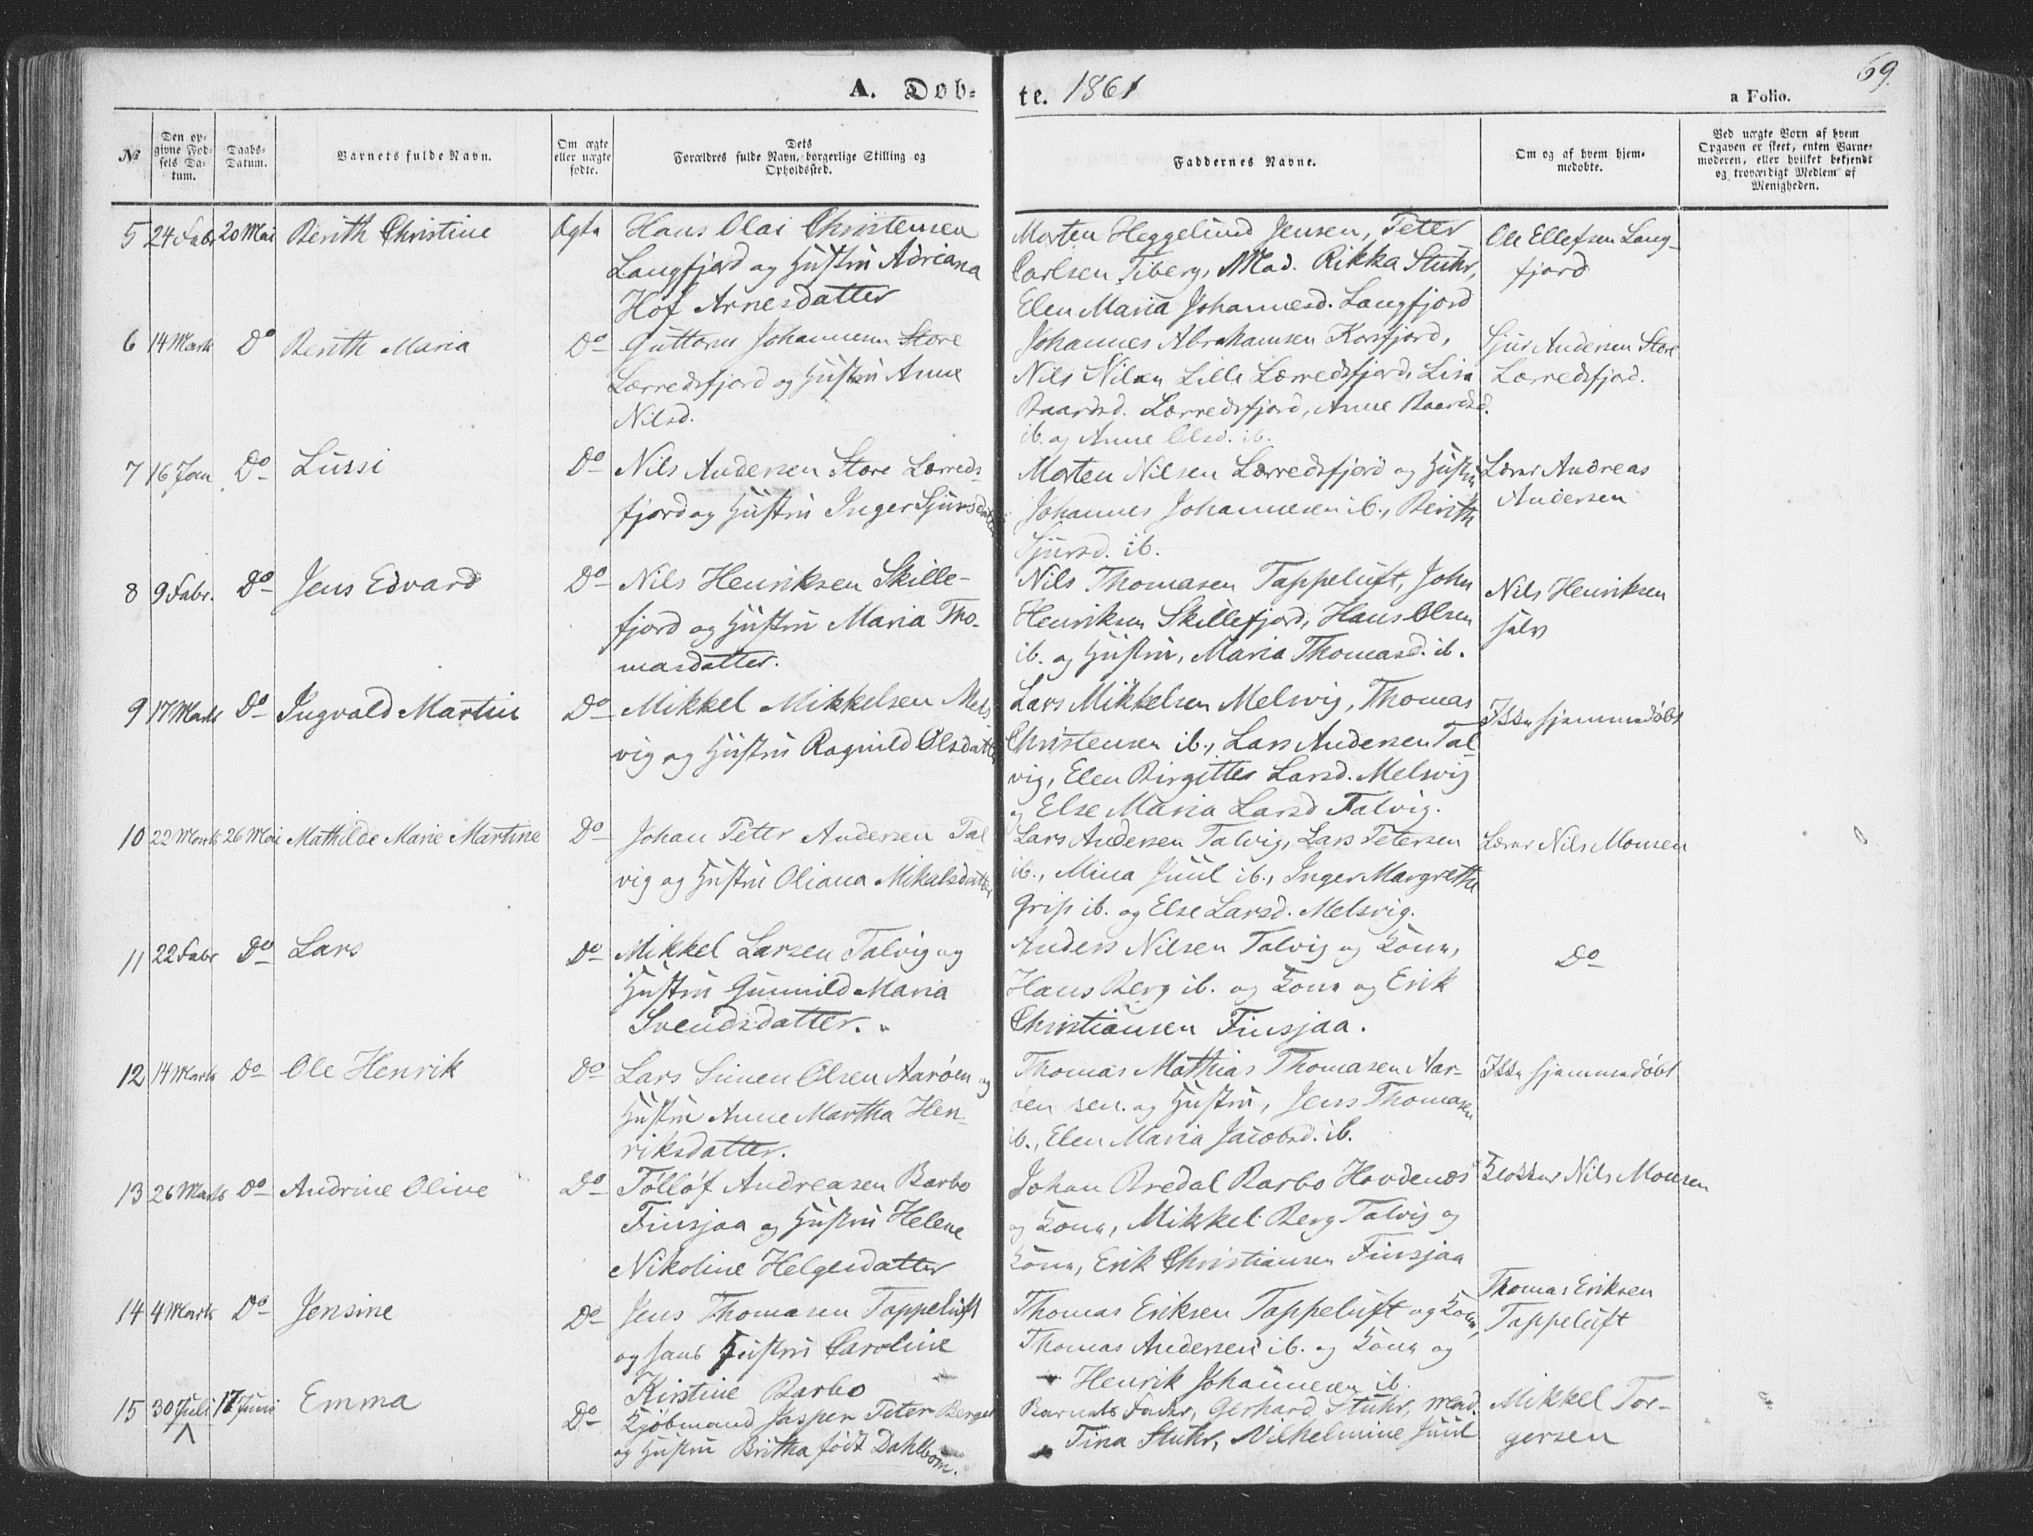 A. Døb-
te. 1861
69.
a Folio.
№
Den op-
givne Fød-
sels Da-
tum.
Daabs-
Datum.
Barnets fulde Navn.
Om ægte
eller uægte
fødte.
Dets
Forældres fulde Navn, borgerlige Stilling og
Opholdssted.
Faddernes Navne.
Om og af hvem hjem-
medøbte.
Ved uægte Børn af hvem
Opgaven er skeet, enten Barne-
moderen, eller hvilket bekjendt
og troværdigt Medlem af
Menigheden.
5 24 Febr 20 Mai Berith Christine Ægte Hans Olai Christensen
Langfjord og Hustru Adriana
Hof Arnesdatter
Morten Heggelund Jensen, Peter
Carlsen Tiberg, Mad. Rikka Stuhr,
Elen Maria Johannesd. Langfjord
Ole Ellefsen Lang-
fjord
6 14 Marts Do Berith Maria Do Guttorm Johannesen Store
Lærredsfjord og Hustru Anne
Nilsd.
Johannes Abrahamsen Korsfjord,
Nils Nilsen Lille Lærredsfjord, Lisa
Baardsd. Lærredsfjord, Anne Baardsd.
ib. og Anne Olsd. ib.
Sjur Andersen Store
Lærredsfjord.
7 16 Jan Do Lussi Do Nils Andersen Store Lærreds-
fjord og Hustru Inger Sjursdatter
Morten Nilsen Lærredsfjord og Hustru
Johannes Johannesen ib., Berith
Sjursd. ib.
Lærer Andreas
Andersen
8 9 Febr. Do Jens Edvard Do Nils Henriksen Skille-
fjord og Hustru Maria Tho-
masdatter.
Nils Thomasen Tappeluft, John
Henriksen Skillefjord, Hans Olsen
ib. og Hustru, Maria Thomasd. ib.
Nils Henriksen
selv
9 17 Marts Do Ingvald Martin Do Mikkel Mikkelsen Mels
vig og Hustru Ragnild Olsdatter
Lars Mikkelsen Melsvig, Thomas
Christensen ib., Lars Andersen Tal-
vig, Elen Birgitte Larsd. Melsvig
og Else Maria Larsd Talvig.
Ikke hjemmedøbt
10 22 Marts 26 Mai Mathilde Marie Martine Do Johan Peter Andersen Tal
vig og Hustru Oliana Mikalsdatter
Lars Andersen Talvig, Lars Petersen
ib., Mina Juul ib., Inger Margrethe
Grip ib. og Else Larsd. Melsvig.
Lærer Nils Monsen
11 22 Febr Do Lars Do Mikkel Larsen Talvig og
Hustru Gunnild Maria
Svendsdatter.
Anders Nilsen Talvig og Kone,
Hans Berg ib. og Kone og Erik
Christiansen Finsjaa.
Do
12 14 Marts Do Ole Henrik Do Lars Simen Olsen Aarøen og
Hustru Anne Martha Hen-
riksdatter.
Thomas Mathias Thomasen Aar-
øen sen. og Hustru, Jens Thomasen
ib., Elen Maria Jacobsd. ib.
Ikke hjemmedøbt
13 26 Marts Do Andrine Oline Do Tollof Andreasen Barbo
Finsjaa og Hustru Helene
Nikoline Helgesdatter
Johan Bredal Barbo Hovdenæs
og Kone, Mikkel Berg Talvig og
Kone, Erik Christiansen Finsjaa
Klokker Nils Monsen
14 4 Marts Do Jensine Do Jens Thomasen Tappeluft
og hans Hustru Caroline
Kirstine Barbo
Thomas Eriksen Tappeluft og Kone,
Thomas Andersen ib. og Kone og
Henrik Johannesen ib.
Thomas Eriksen
Tappeluft
15 30 Juli 17 Juni Emma Do Kjøbmand Jasper Peter Berger
og Hustru Britha født Dahlbom.
Barnets Fader, Gerhard Stuhr, Mad.
Tina Stuhr, Vilhelmine Juul
Mikkel Tor-
gersen